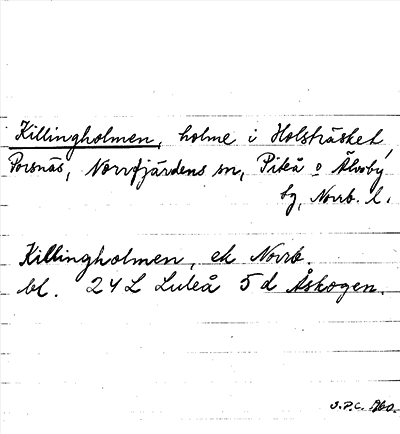 Killingholmen, holme i Holsträsket,
Porsnäs, Norrfjärdens sn, Piteå o Älvsby
tg, Norrb. l.
Killingholmen, ek Norrb.
bl. 24 L Luleå 5 d Åskogen.
J.P.C.